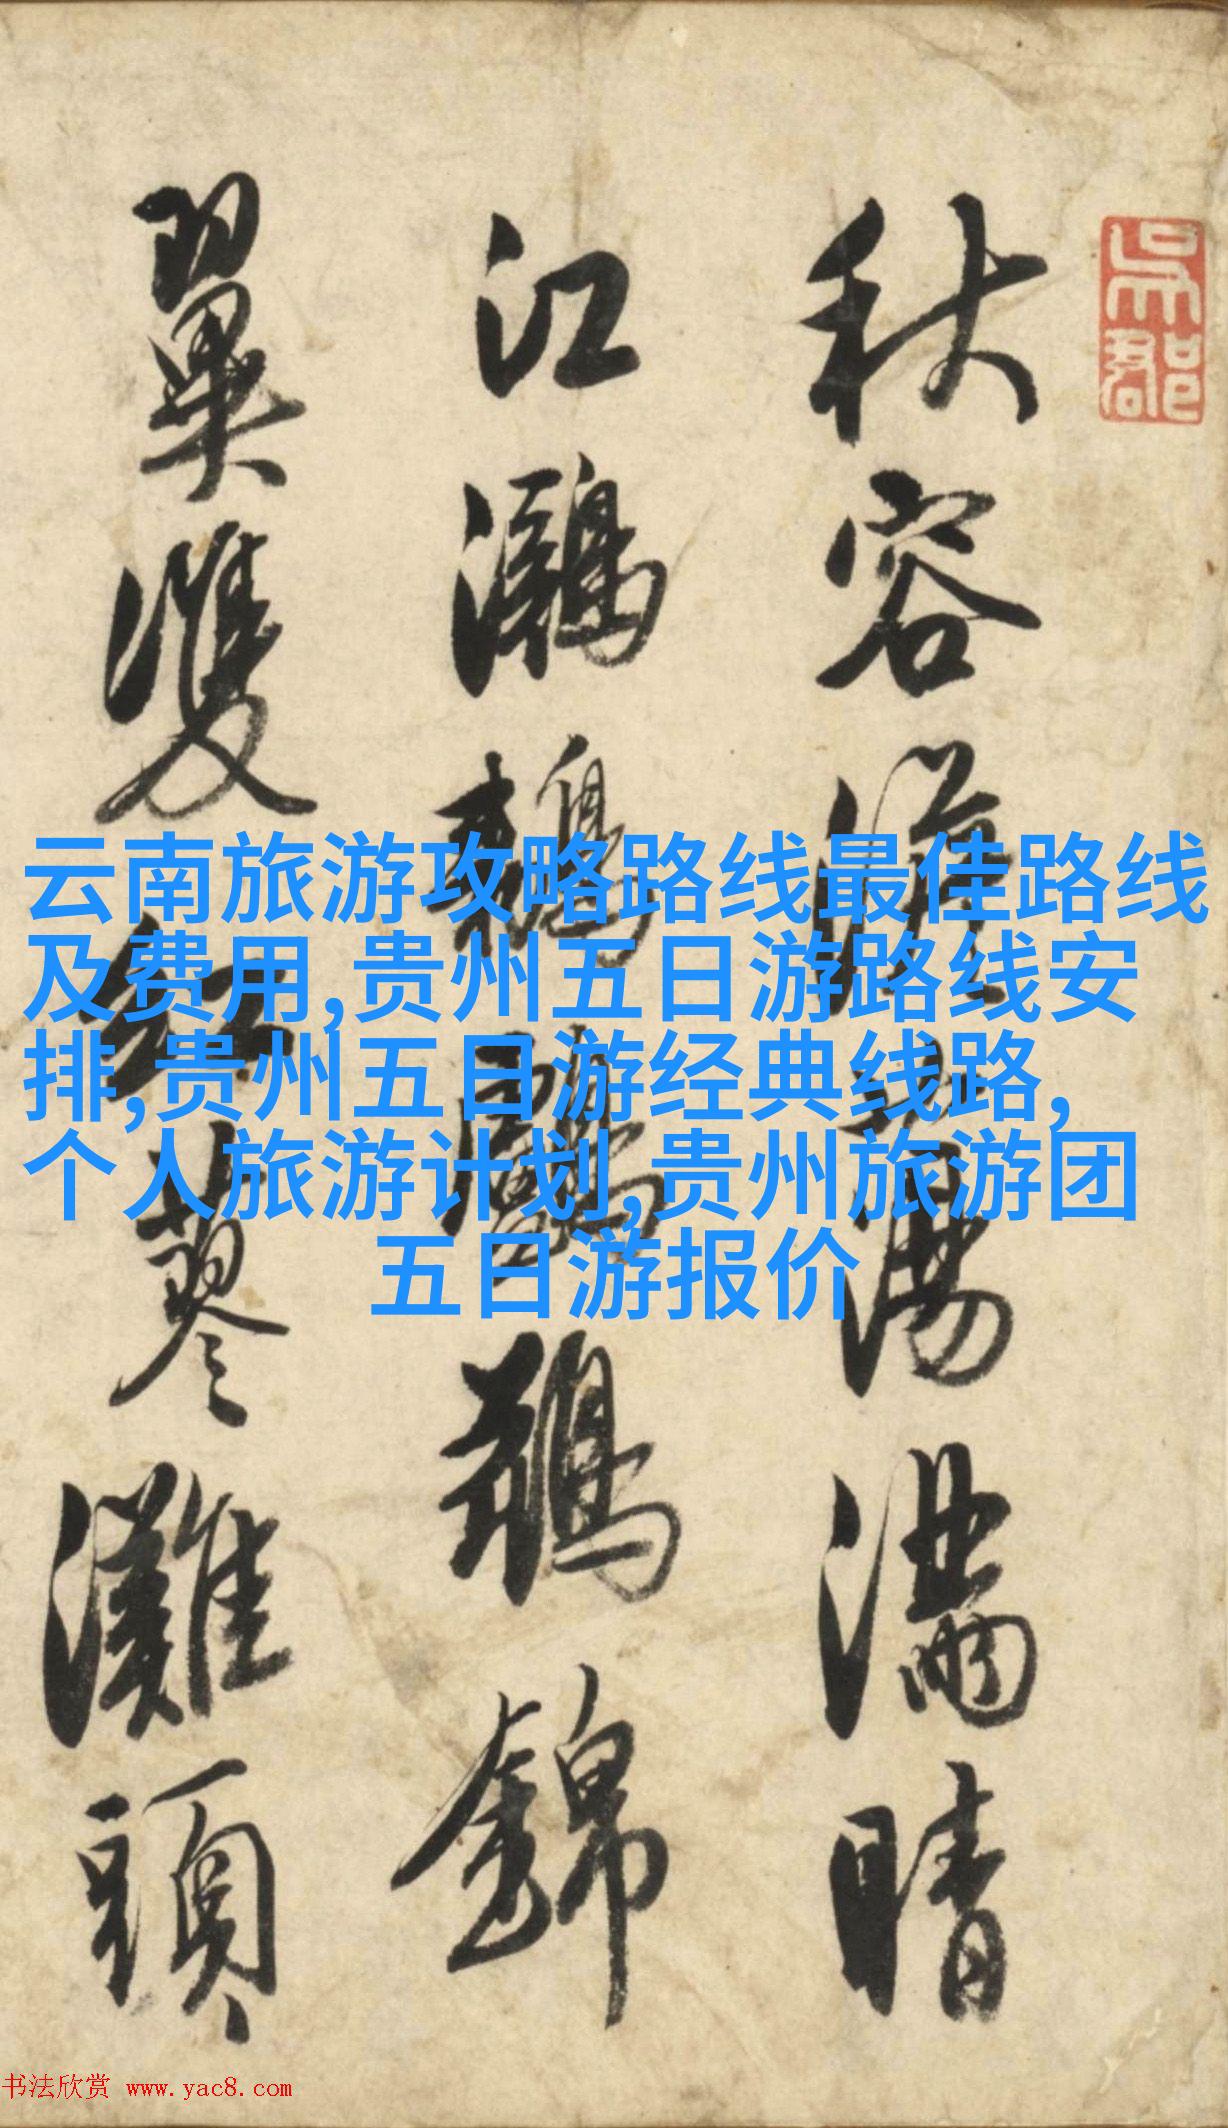 吳郡
秋容蕩滿晴
江鸂鶒鸕鶿錦
翼雙紅蓼灘頭
云南旅游攻略路线最佳路线
及费用,贵州五日游路线安
排,贵州五日游经典线路,
个人旅游计划,贵州旅游团
五日游报价
书法欣赏 www.yac8.com